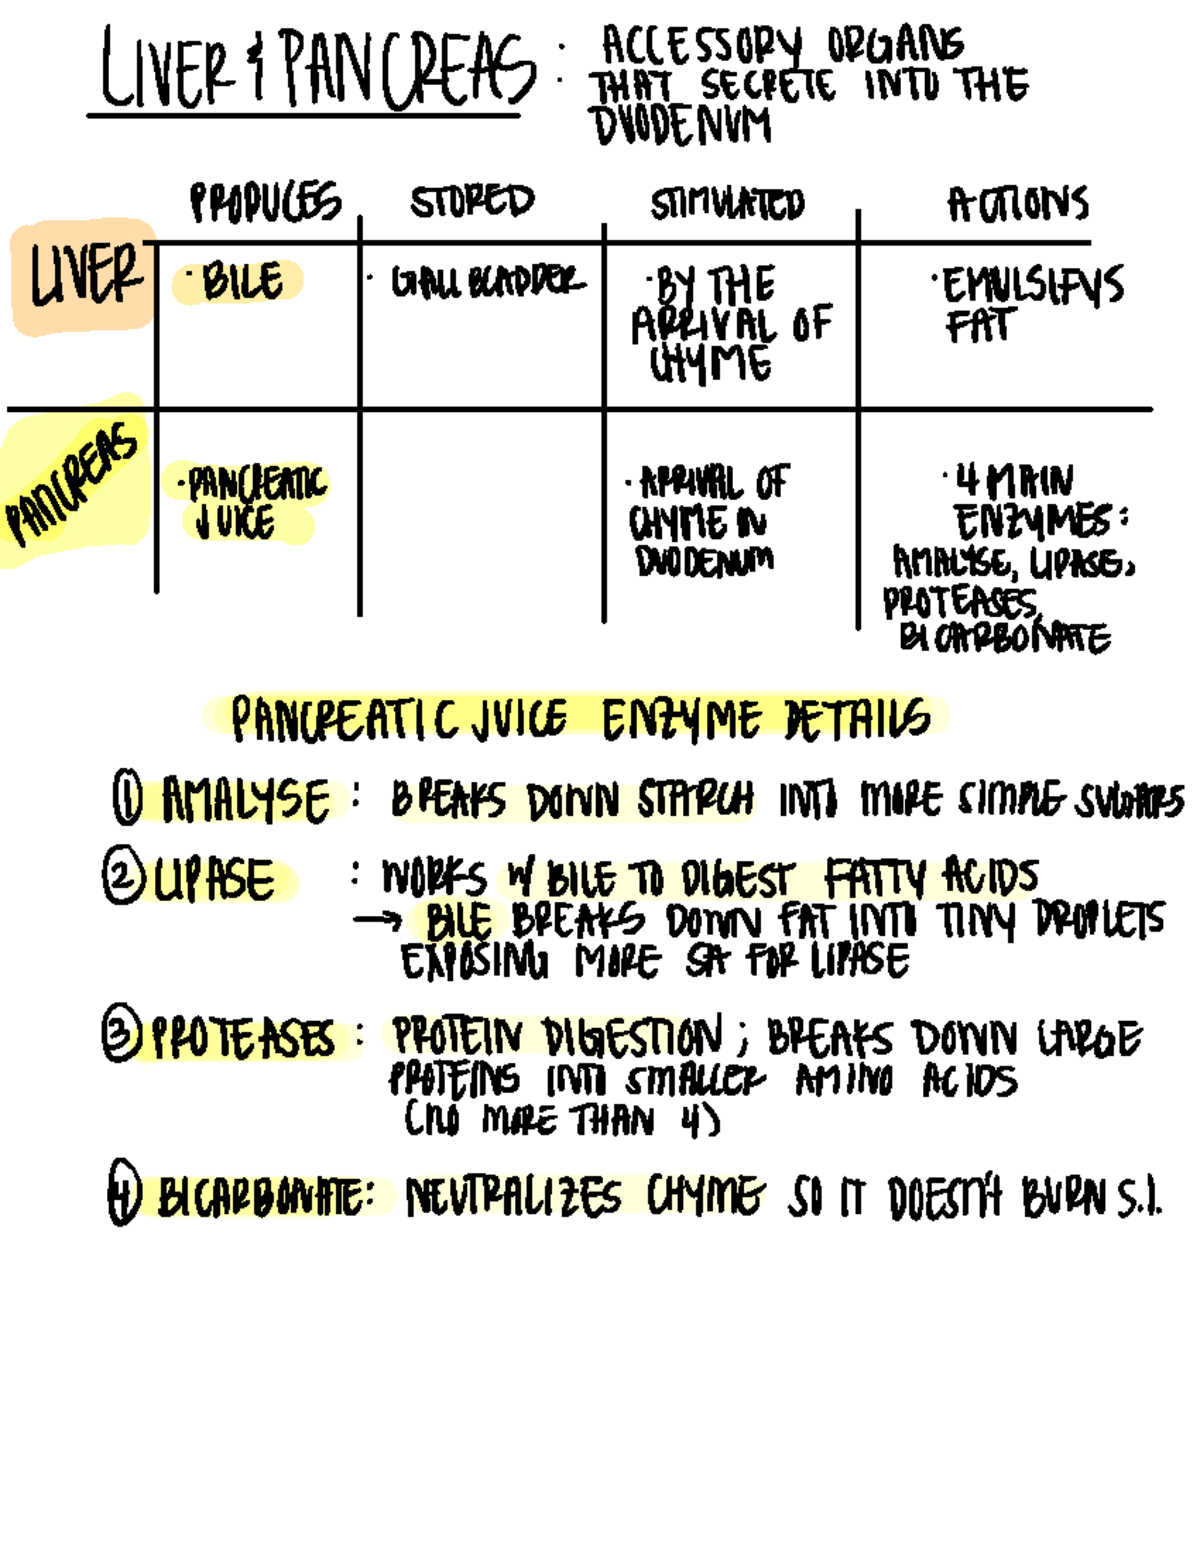 LIVER & PANCREAS : ACCESSORY ORGANS
THAT SECRETE INTO THE
DUODENUM
PRODUCES STORED STIMULATED ACTIONS
LIVER · BILE · GALLBLADDER · BY THE
ARRIVAL OF
CHYME
· EMULSIFYS
FAT
PANCREAS · PANCREATIC
JUICE
· ARRIVAL OF
CHYME IN
DUODENUM
· 4 MAIN
ENZYMES:
AMALYSE, LIPASE,
PROTEASES,
BICARBONATE
PANCREATIC JUICE ENZYME DETAILS
① AMALYSE : BREAKS DOWN STARCH INTO MORE SIMPLE SUGARS
② LIPASE : WORKS W/ BILE TO DIGEST FATTY ACIDS
→ BILE BREAKS DOWN FAT INTO TINY DROPLETS
EXPOSING MORE SA FOR LIPASE
③ PROTEASES : PROTEIN DIGESTION ; BREAKS DOWN LARGE
PROTEINS INTO SMALLER AMINO ACIDS
(NO MORE THAN 4)
④ BICARBONATE: NEUTRALIZES CHYME SO IT DOESN'T BURN S.I.